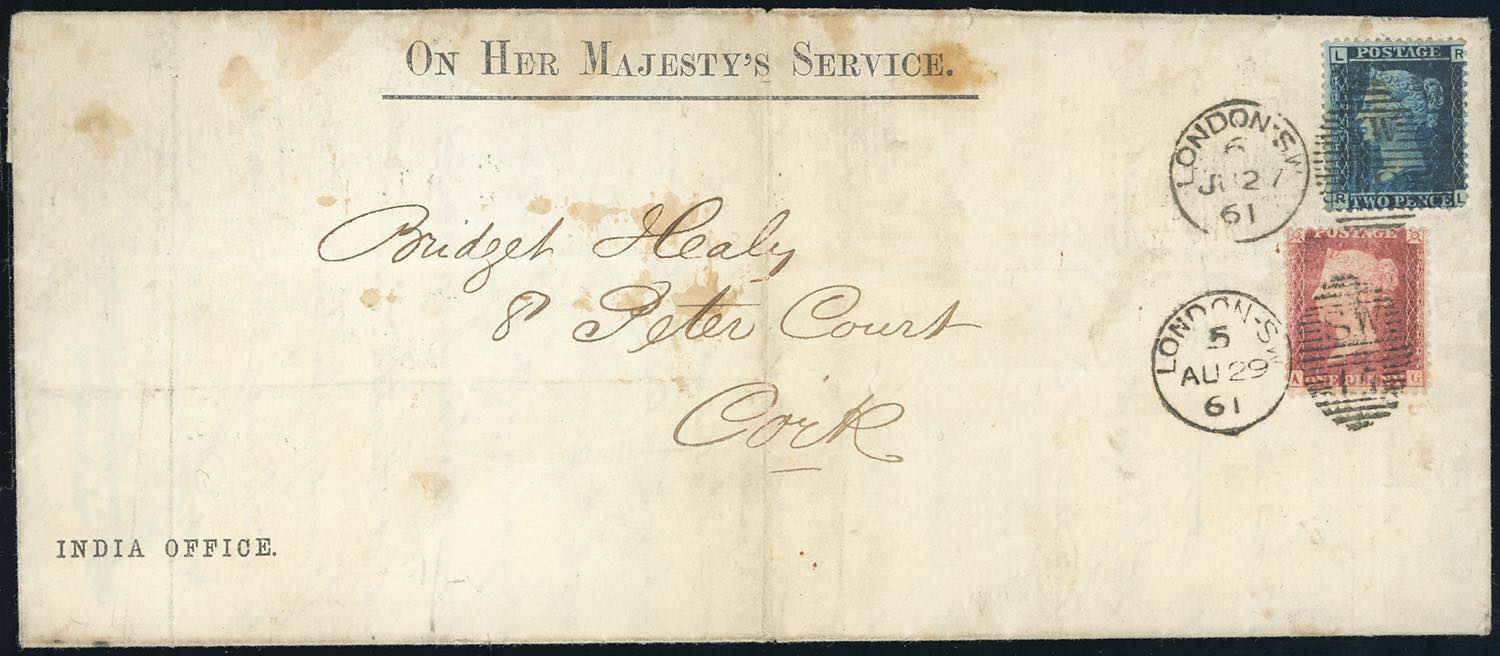 ON HER MAJESTY'S SERVICE.
L POSTAGE R
R TWO PENCE L
LONDON-SW
6
JU 27
61
W
Bridget Healy
8 Peter Court
Cork
POSTAGE
A G
LONDON-SW
5
AU 29
61
SW
INDIA OFFICE.